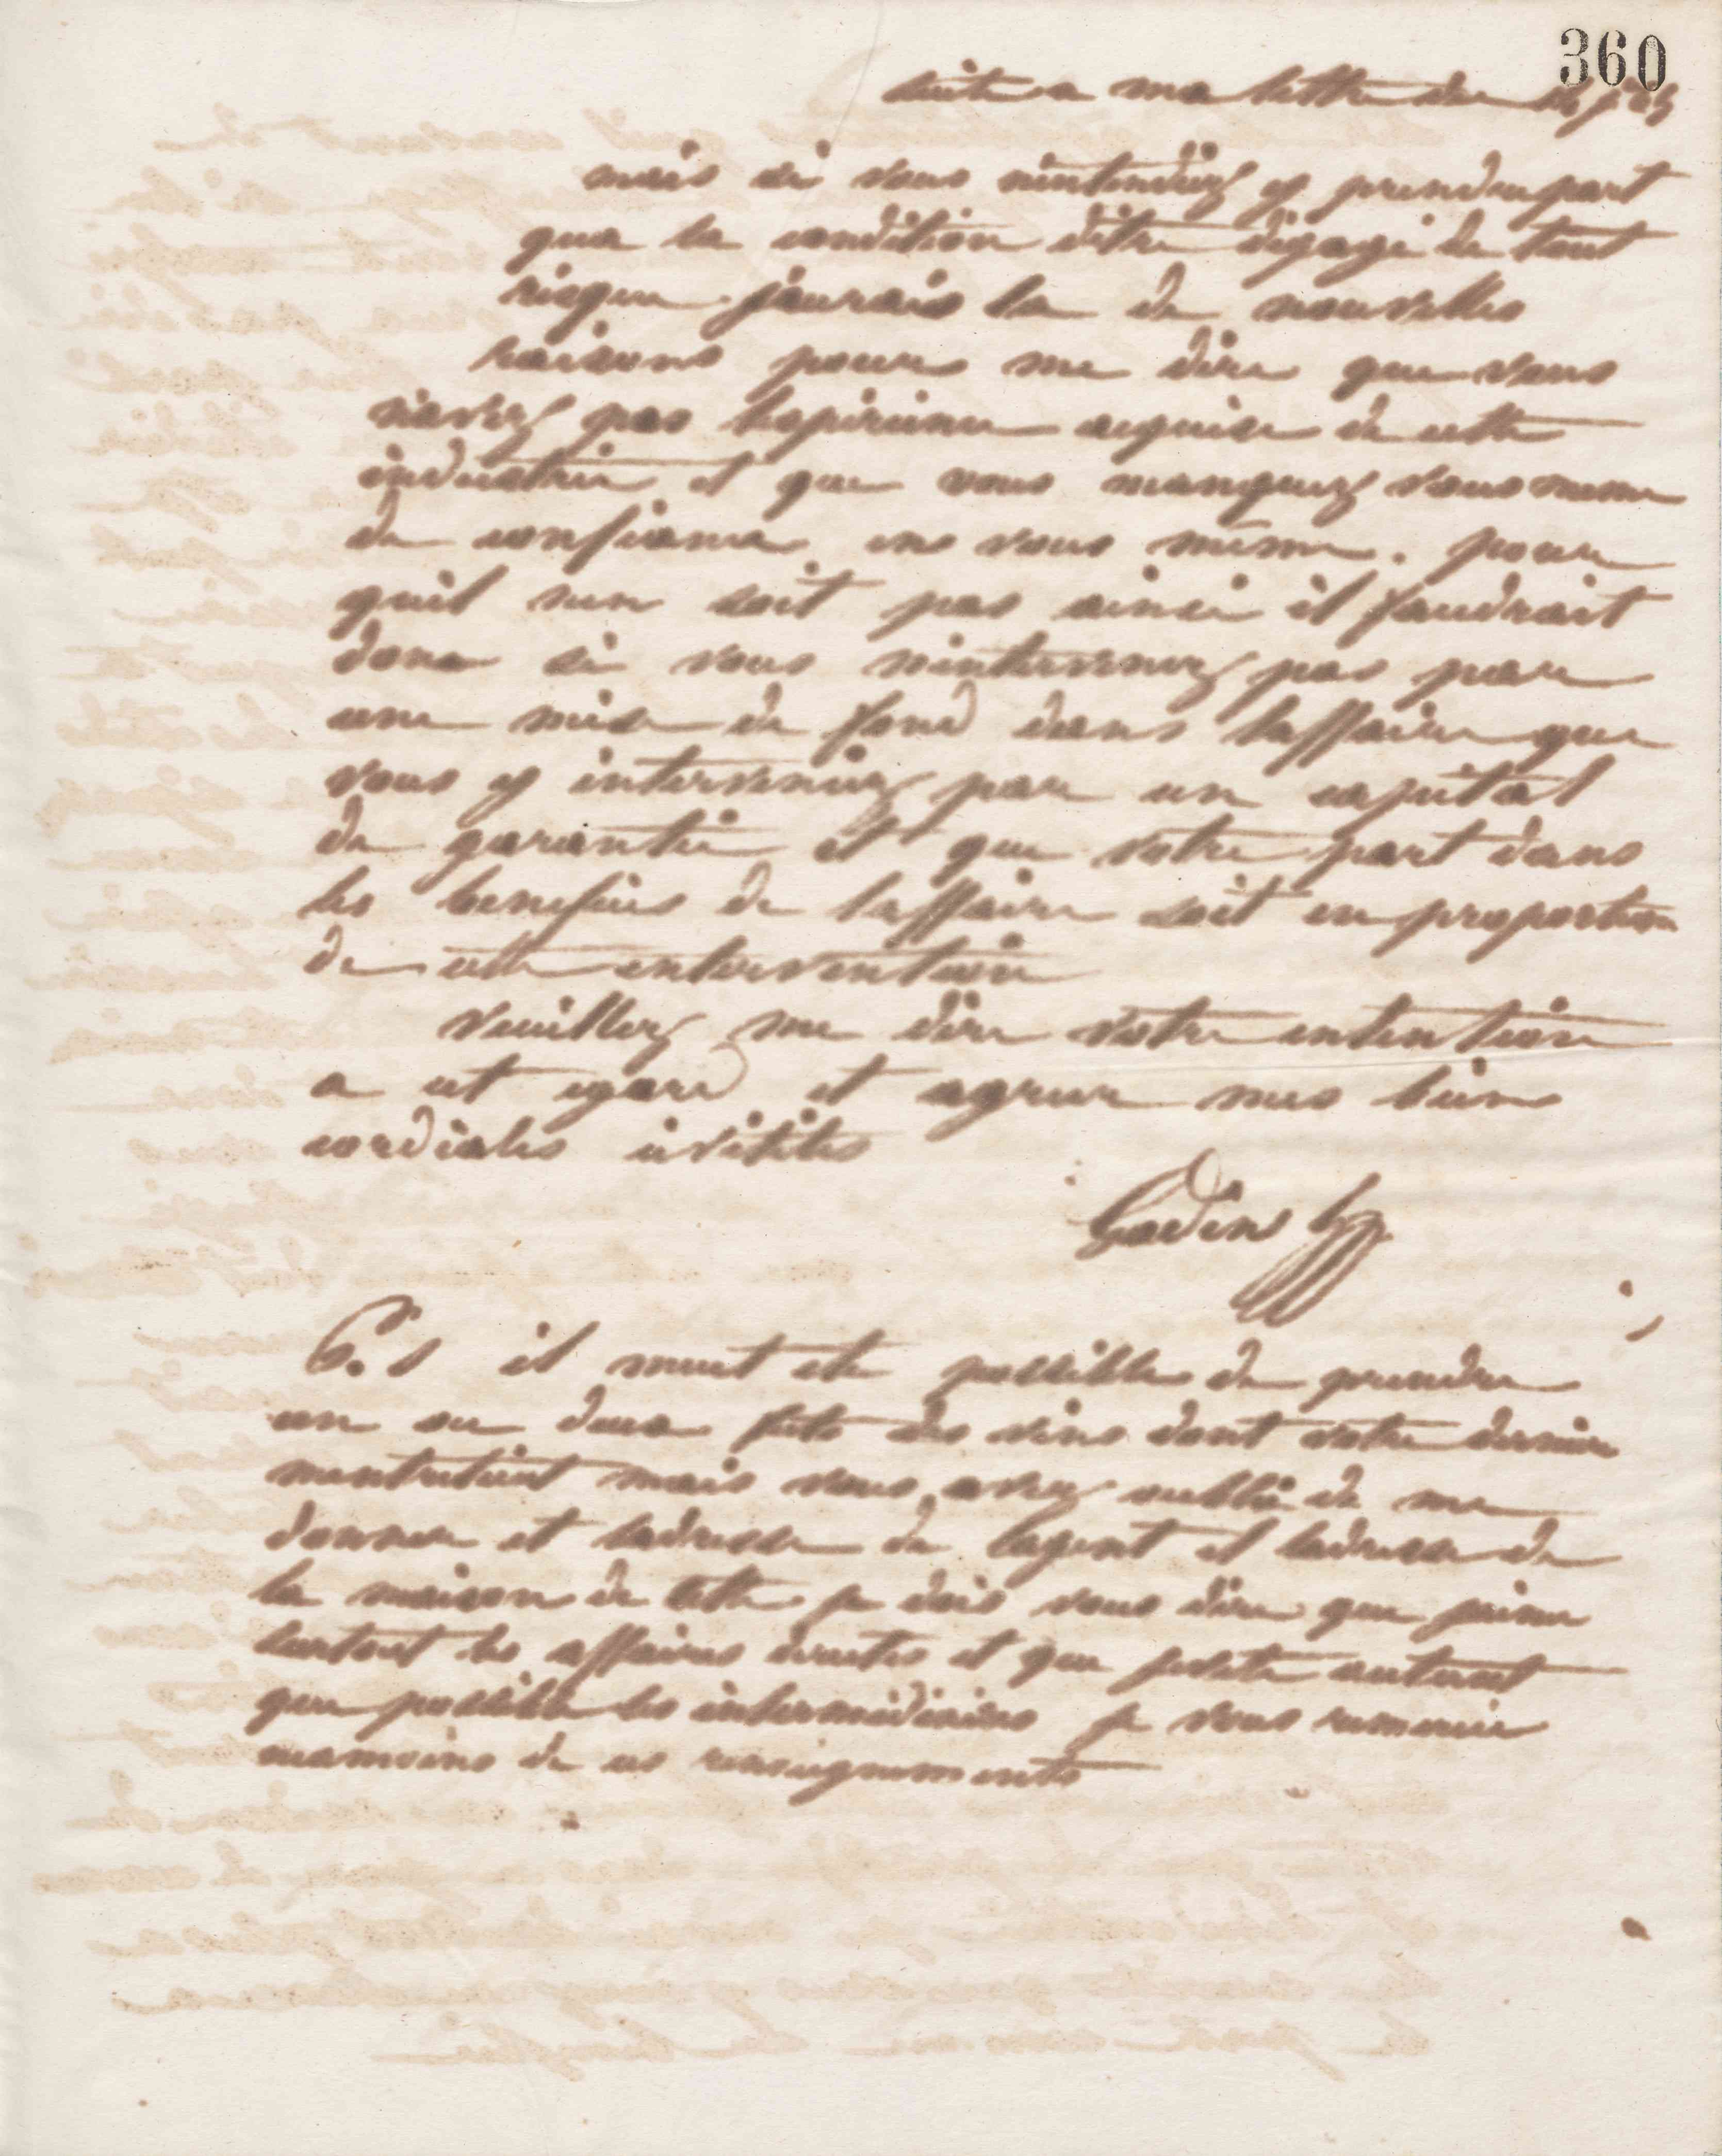 360
suite a ma lettre du
mais si vous nintendiez y prendre part
qua la condition detre dégagé de tout
risque jaurais la de nouvelles
raisons pour me dire que vous
navez pas lexpérience acquise de cette
industrie et que vous manquez vous meme
de confiance en vous même. pour
quil nen soit pas ainsi il faudrait
donc si vous nintervenez pas par
une mise de fond dans laffaire que
vous y interveniez par un capital
de garantie et que votre part dans
les benefices de laffaire soit en proportion
de cette intervention
Veuillez me dire votre intention
a cet egard et agreer mes bien
cordiales civilités
Godin
P.S il meut ete possible de prendre
un ou deux futs des vins dont votre derniere
mentretient mais vous avez oublié de me
donner et ladresse de lagent et ladresse de
la maison de Cette je dois vous dire que jaime
surtout les affaires directes et que jevite autant
que possible les intermédiaires je vous remercie
neamoins de ces renseignements